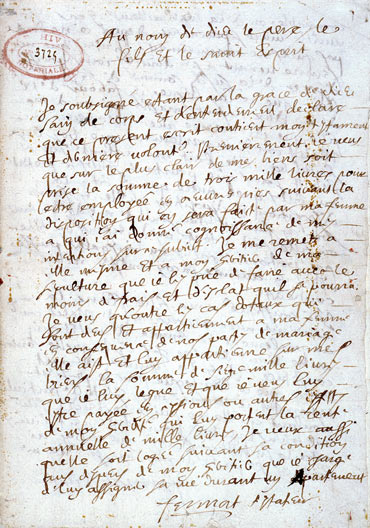 3725
Au nom de dieu le pere, le
fils et le saint esprit
Je soubsigne estant par la grace de dieu
sain de corps et d'entendement declare
que ce present escrit contient mon testament
et derniere volonté. Premierement je veus
que sur le plus clair de mes biens soit
prise la somme de trois mille livres pour
estre employée en œuvres pies suivant la
disposition qui en sera fait par ma femme
a qui j'ai donné cognoissance de mes
intentions sur ce subiet. Je me remets a
elle mesme et a mon heritier de ma
sepulture que je les prie de faire avec le
moins de frais et d'esclat qu'il se pourra
Je veus qu'outre les cas dotaux qui
sont deus et appartiennent a ma femme
en consequence de nos pactes de mariage
elle ait et luy appartienne sur mes
biens la somme de sept mille livres
que je luy legue et que je veus luy
estre payée en pensions ou autres effets
de mon heredité qui luy portent la rente
annuelle de mille livres Je veux aussi
quelle soit logée suivant sa condition
aux despens de mon heritier que je charge
de luy assigner sa vie durant un appartement
fermat testateur